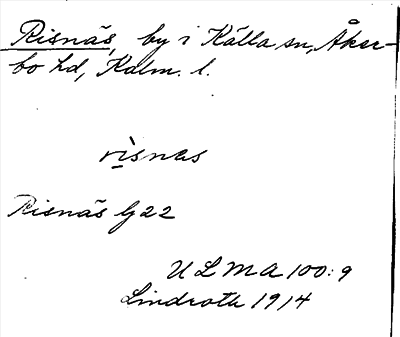 Risnäs, by i Källa sn, Åker-
bo hd, Kalm. l.
rìsnas
Risnäs Gj22
ULMA 100:9
Lindroth 1914